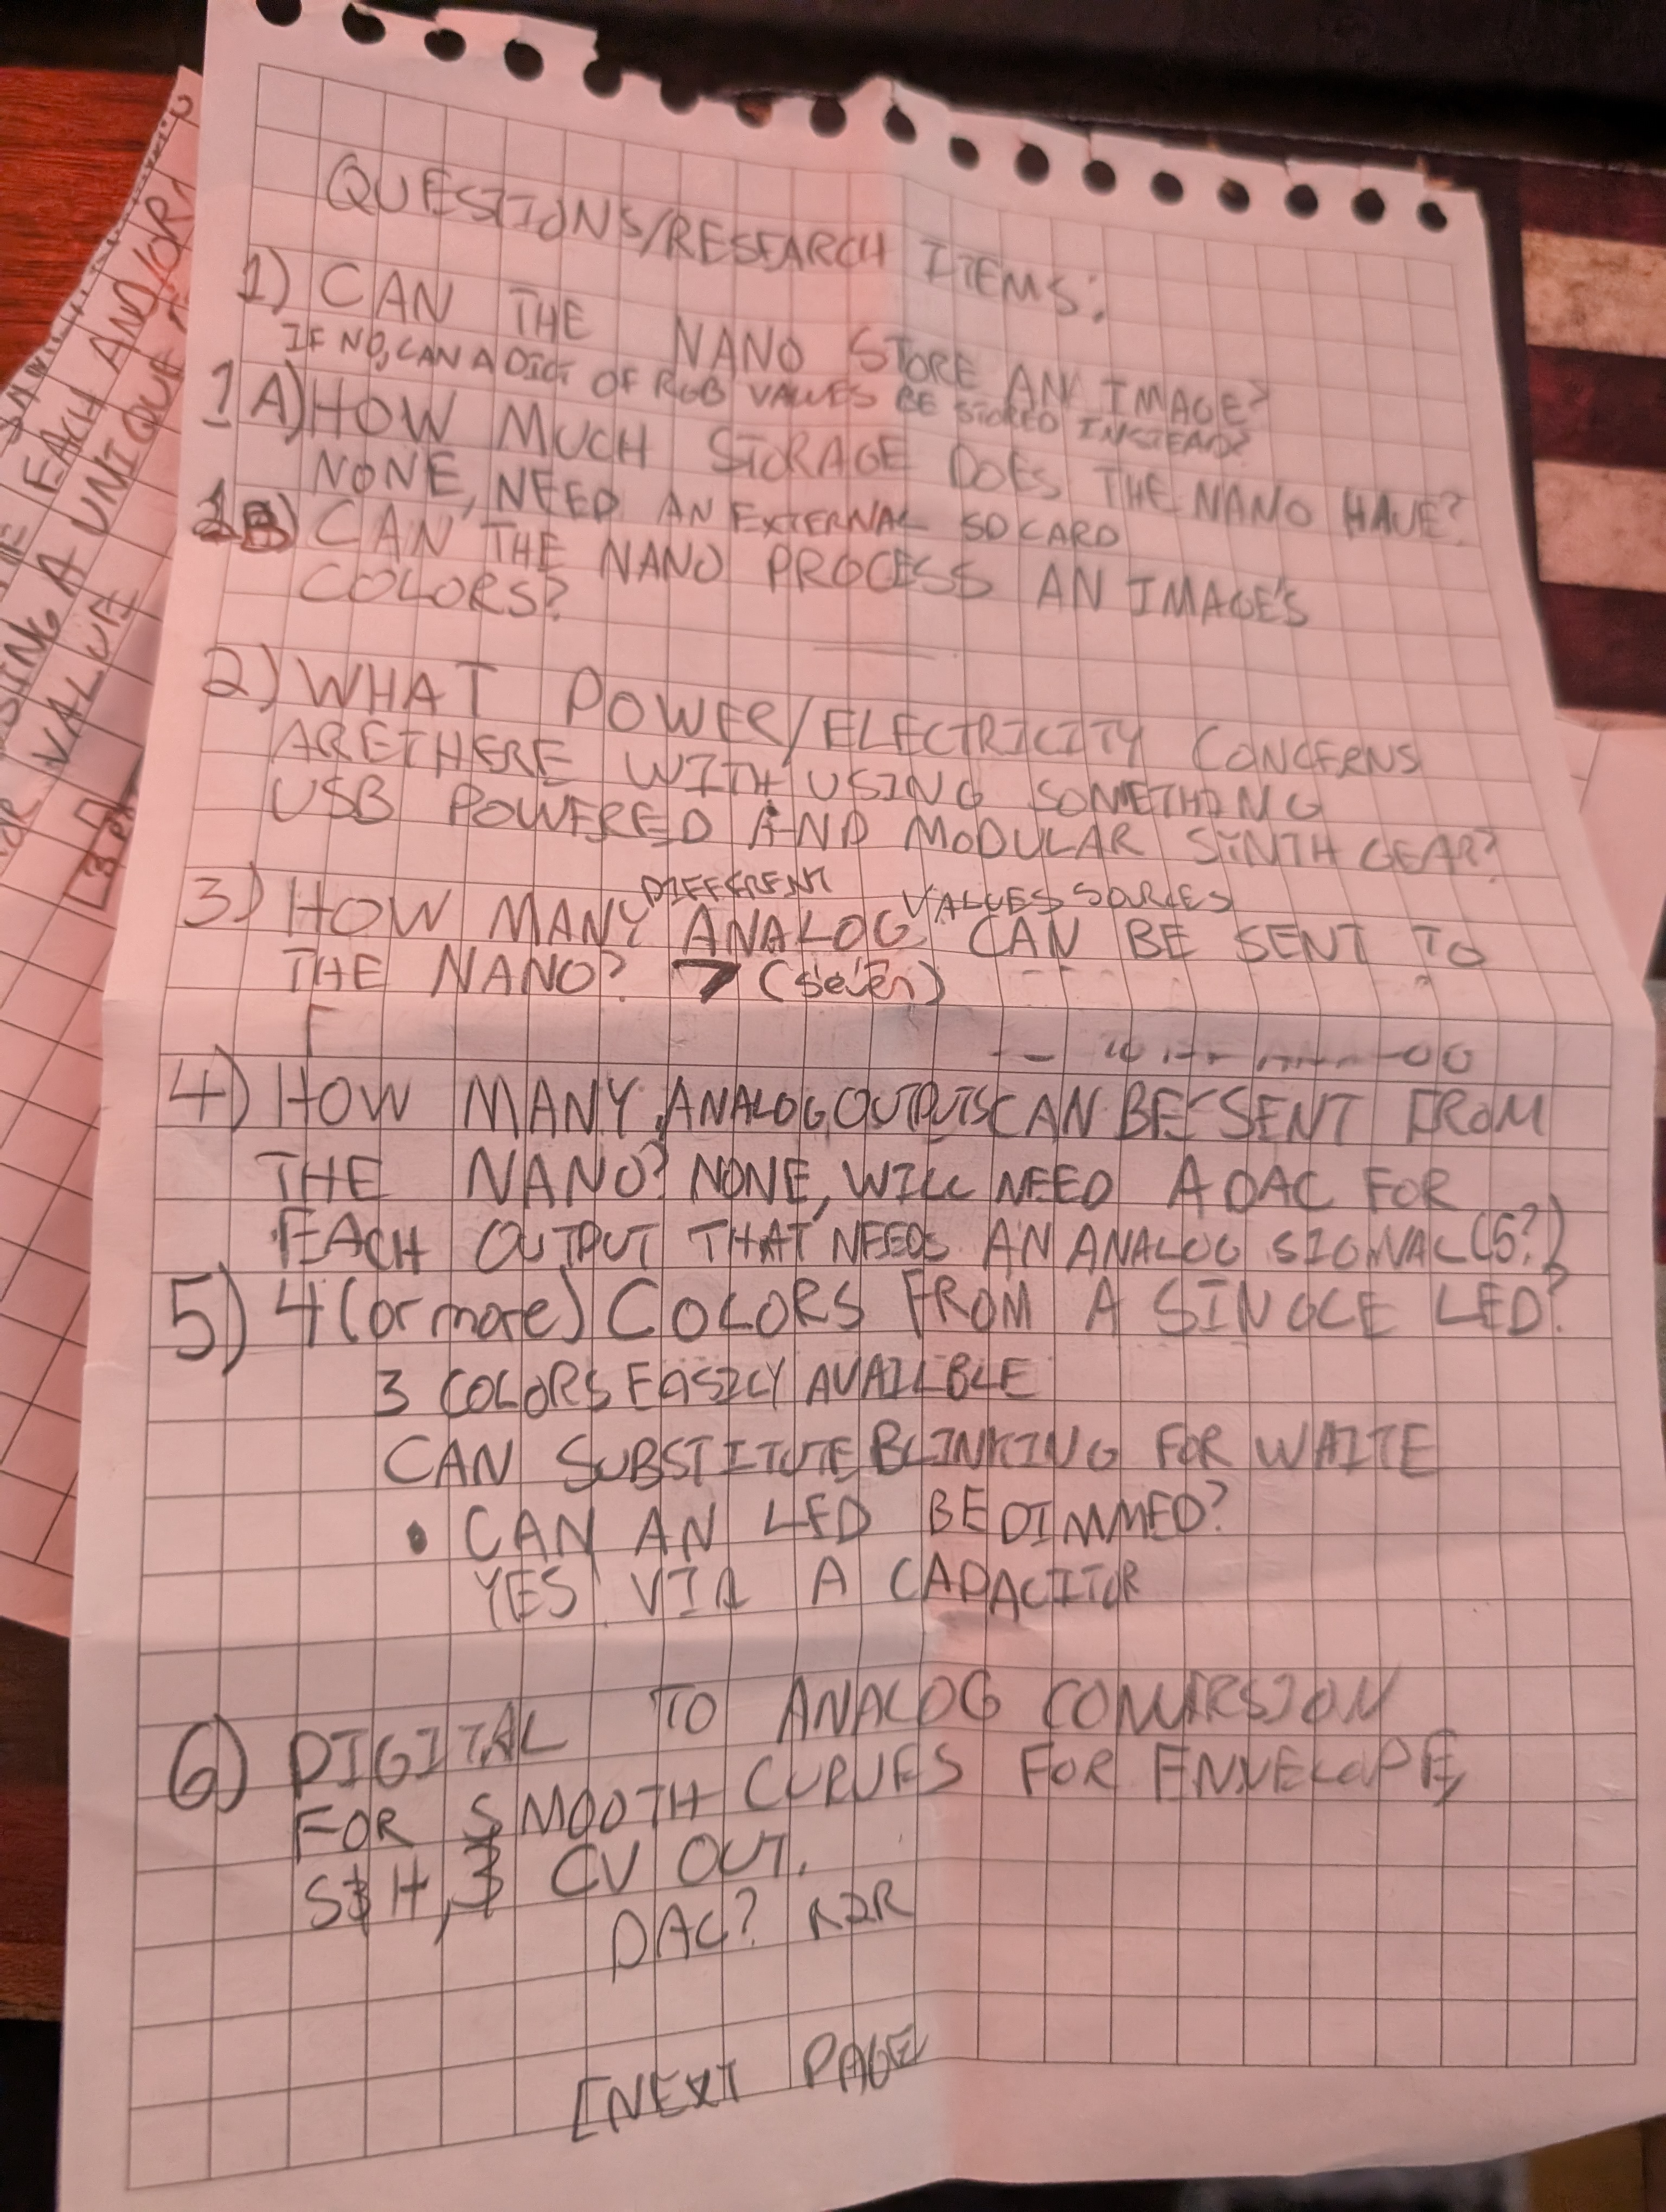 QUESTIONS/RESEARCH ITEMS:
1) CAN THE NANO STORE AN IMAGE?
IF NO, CAN A DICT OF RGB VALUES BE STORED INSTEAD?
1A) HOW MUCH STORAGE DOES THE NANO HAVE?
NONE, NEED AN EXTERNAL SD CARD
1B) CAN THE NANO PROCESS AN IMAGE'S
COLORS?
2) WHAT POWER/ELECTRICITY CONCERNS
ARE THERE WITH USING SOMETHING
USB POWERED AND MODULAR SYNTH GEAR?
3) HOW MANY DIFFERENT ANALOG VALUES SOURCES CAN BE SENT TO
THE NANO? 7 (seven)
4) HOW MANY ANALOG OUTPUTS CAN BE SENT FROM
THE NANO? NONE, WILL NEED A DAC FOR
EACH OUTPUT THAT NEEDS AN ANALOG SIGNAL (5?)
5) 4 (or more) COLORS FROM A SINGLE LED?
3 COLORS EASILY AVAILBLE
CAN SUBSTITUTE BLINKING FOR WHITE
• CAN AN LED BE DIMMED?
YES VIA A CAPACITOR
6) DIGITAL TO ANALOG CONVERSION
FOR SMOOTH CURVES FOR ENVELOPE,
S&H, & CV OUT.
DAC? R2R
[NEXT PAGE
EACH AND/OR
USING A UNIQUE
VALUE